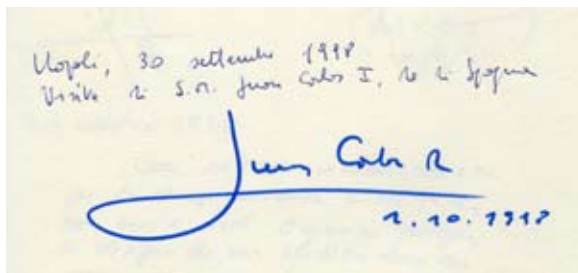 Napoli, 30 settembre 1998
Visita di S.M. Juan Carlos I, re di Spagna
Juan Carlos R
1.10.1998